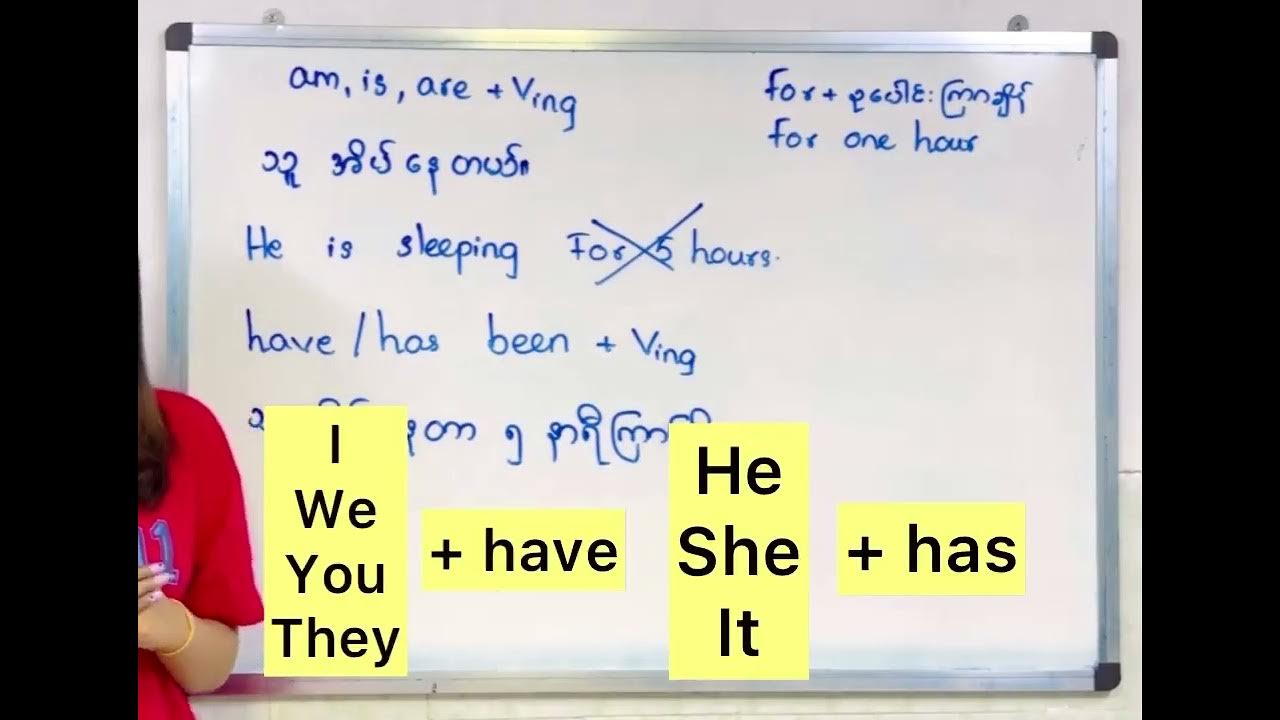 am, is, are + Ving
သူ အိပ် နေ တယ်။
He is sleeping For 5 hours.
have / has been + Ving
တာ ၅ နာရီ
for + စုပေါင်းကြာချိန်
for one hour
I
We
You
They
+ have
He
She
It
+ has